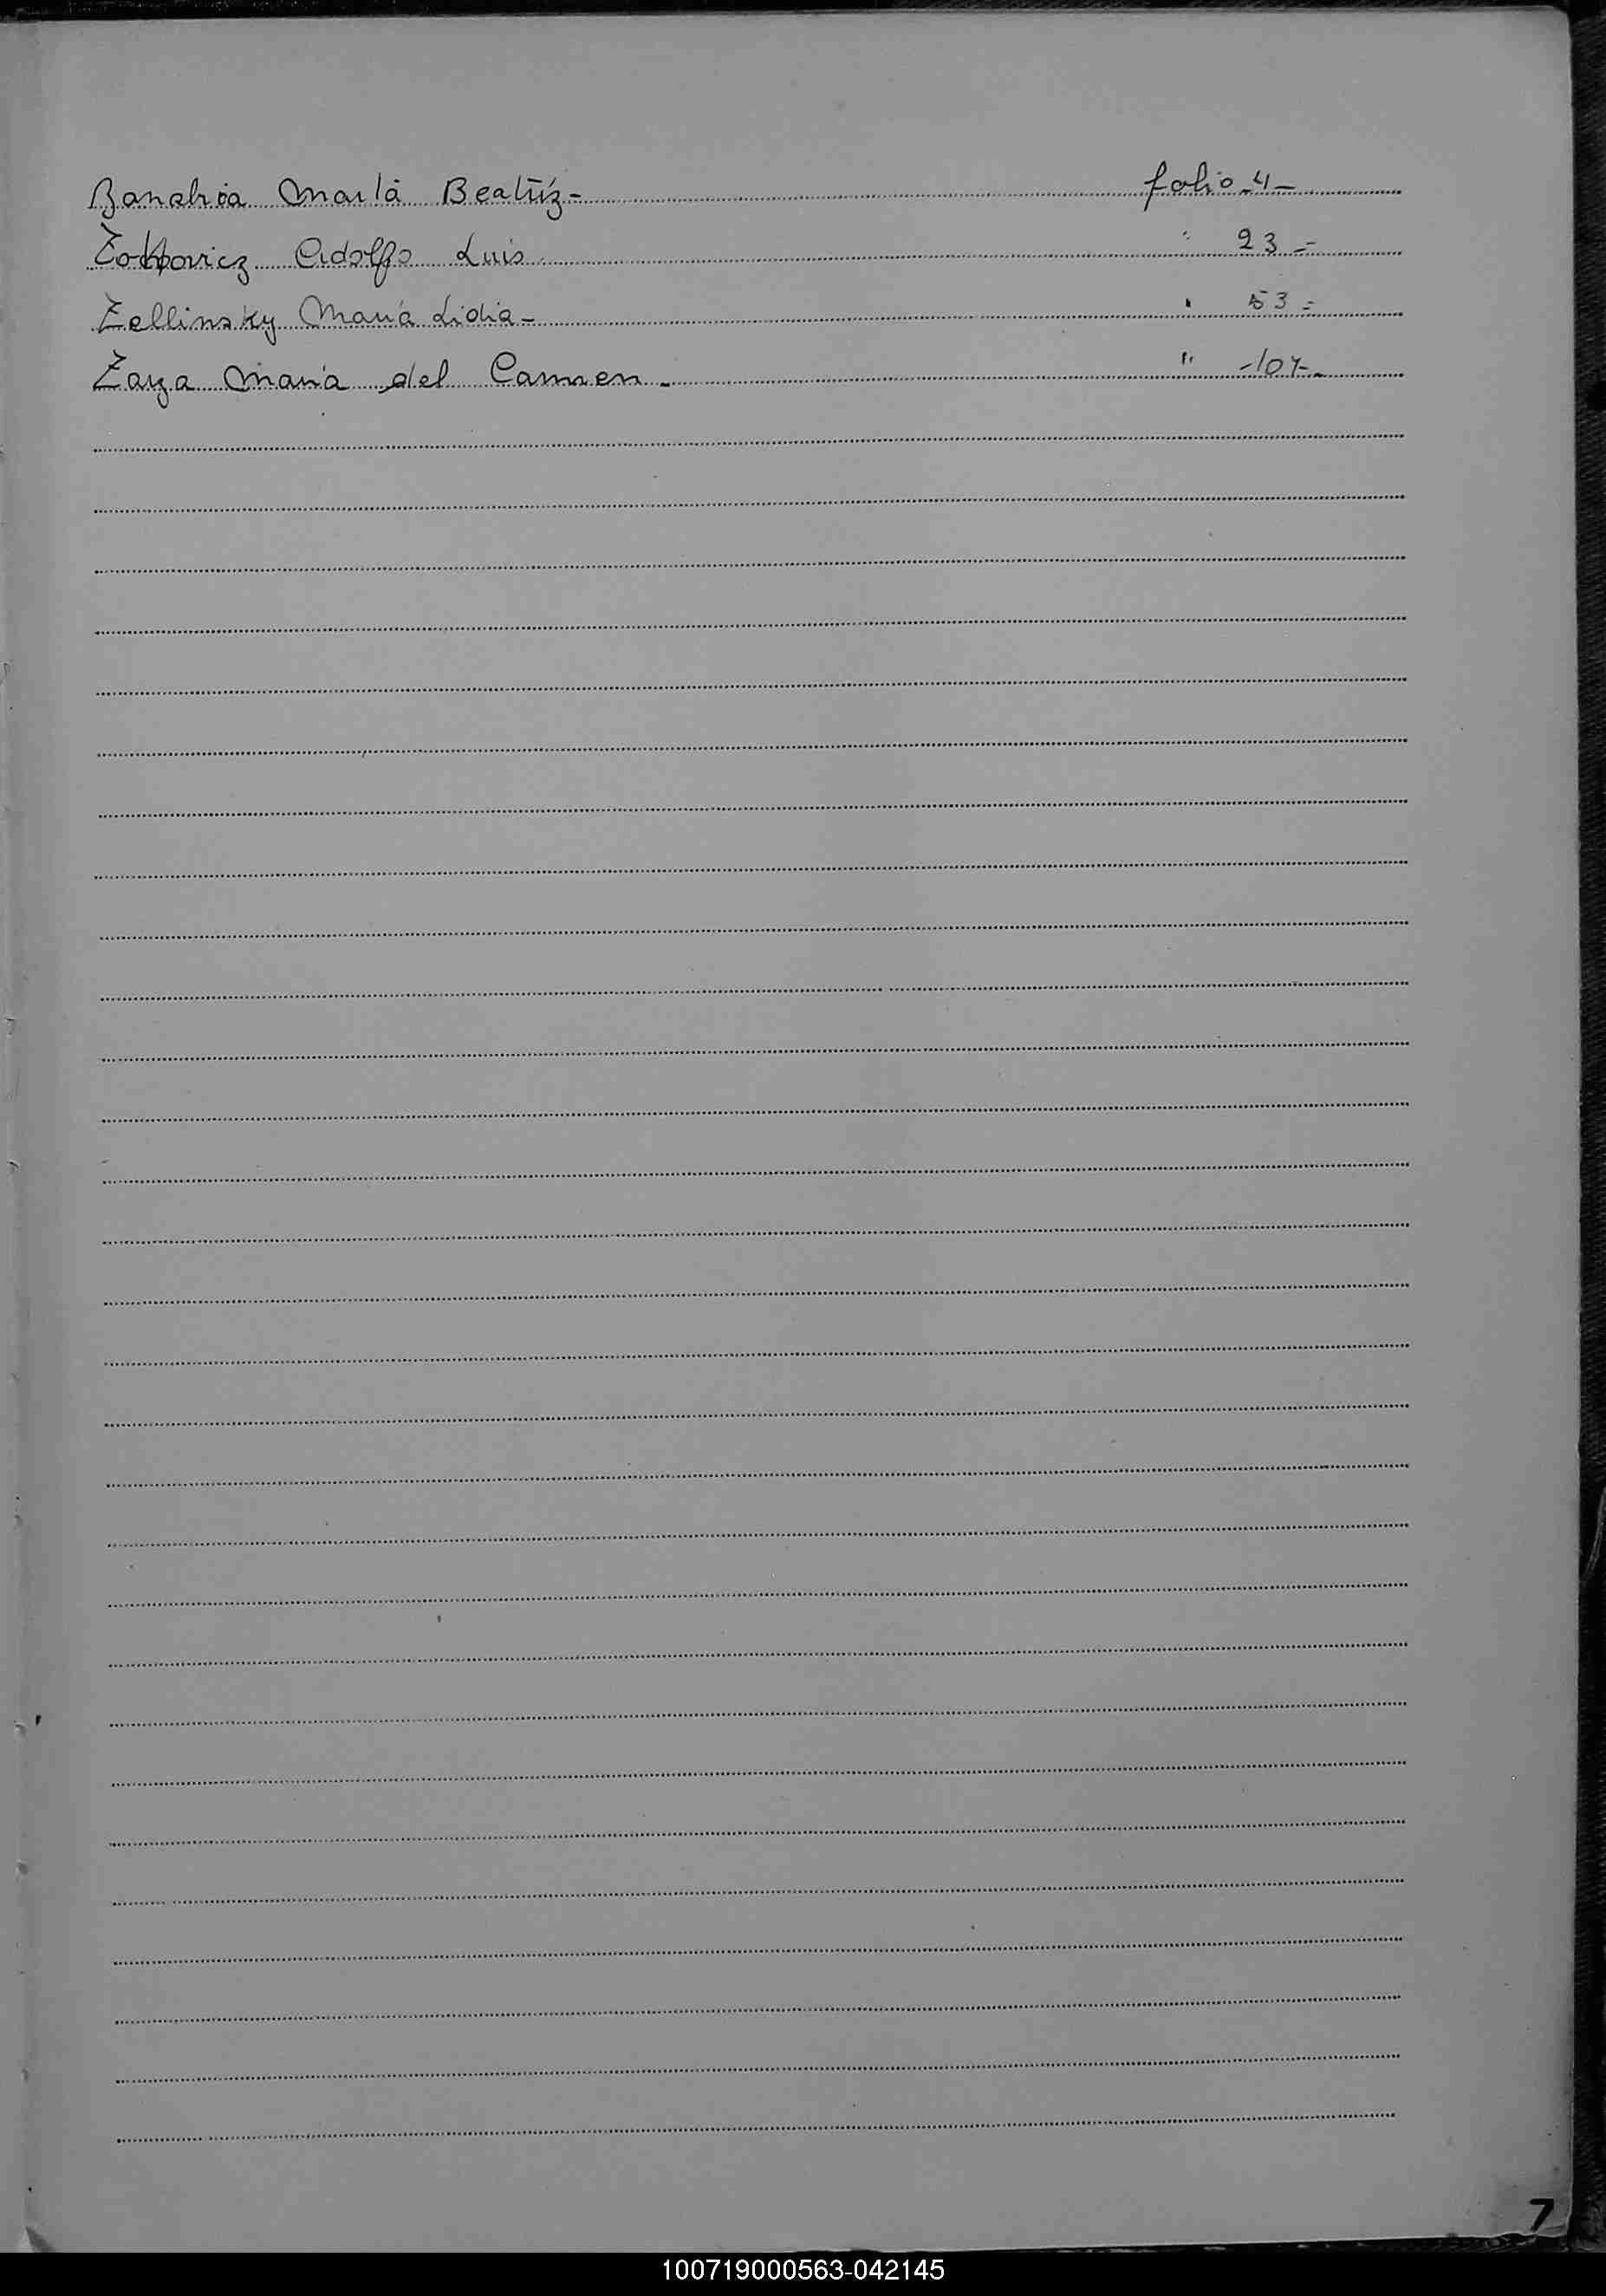 Zanabria Marta Beatriz - folio - 4 -
Zokpovicz Adolfo Luis " 23 -
Zellinsky María Lidia - " 53 -
Zaya María del Carmen - " - 107 -
7
100719000563-042145